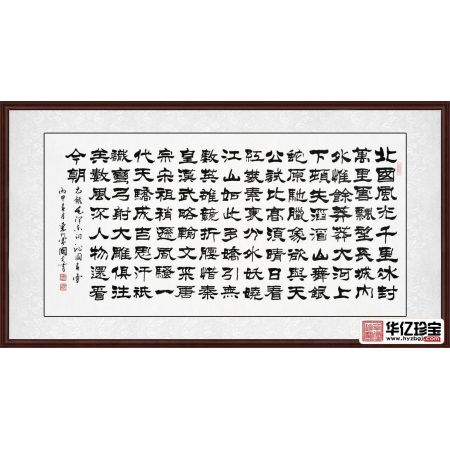 北國風光千里冰封
萬里雪飄望長城内
外惟餘莽莽大河上
下頓失滔滔山舞銀
蛇原馳臘象欲與天
公試比高須晴日看
紅裝素裹分外妖嬈
江山如此多嬌引無
數英雄競折腰惜秦
皇漢武略輸文采唐
宗宋祖稍遜風騷一
代天驕成吉思汗衹
識彎弓射大雕俱往
矣數風流人物還看
今朝
右錄毛澤東詞沁園春雪
丙申
华亿珍宝
www.hyzbgj.com